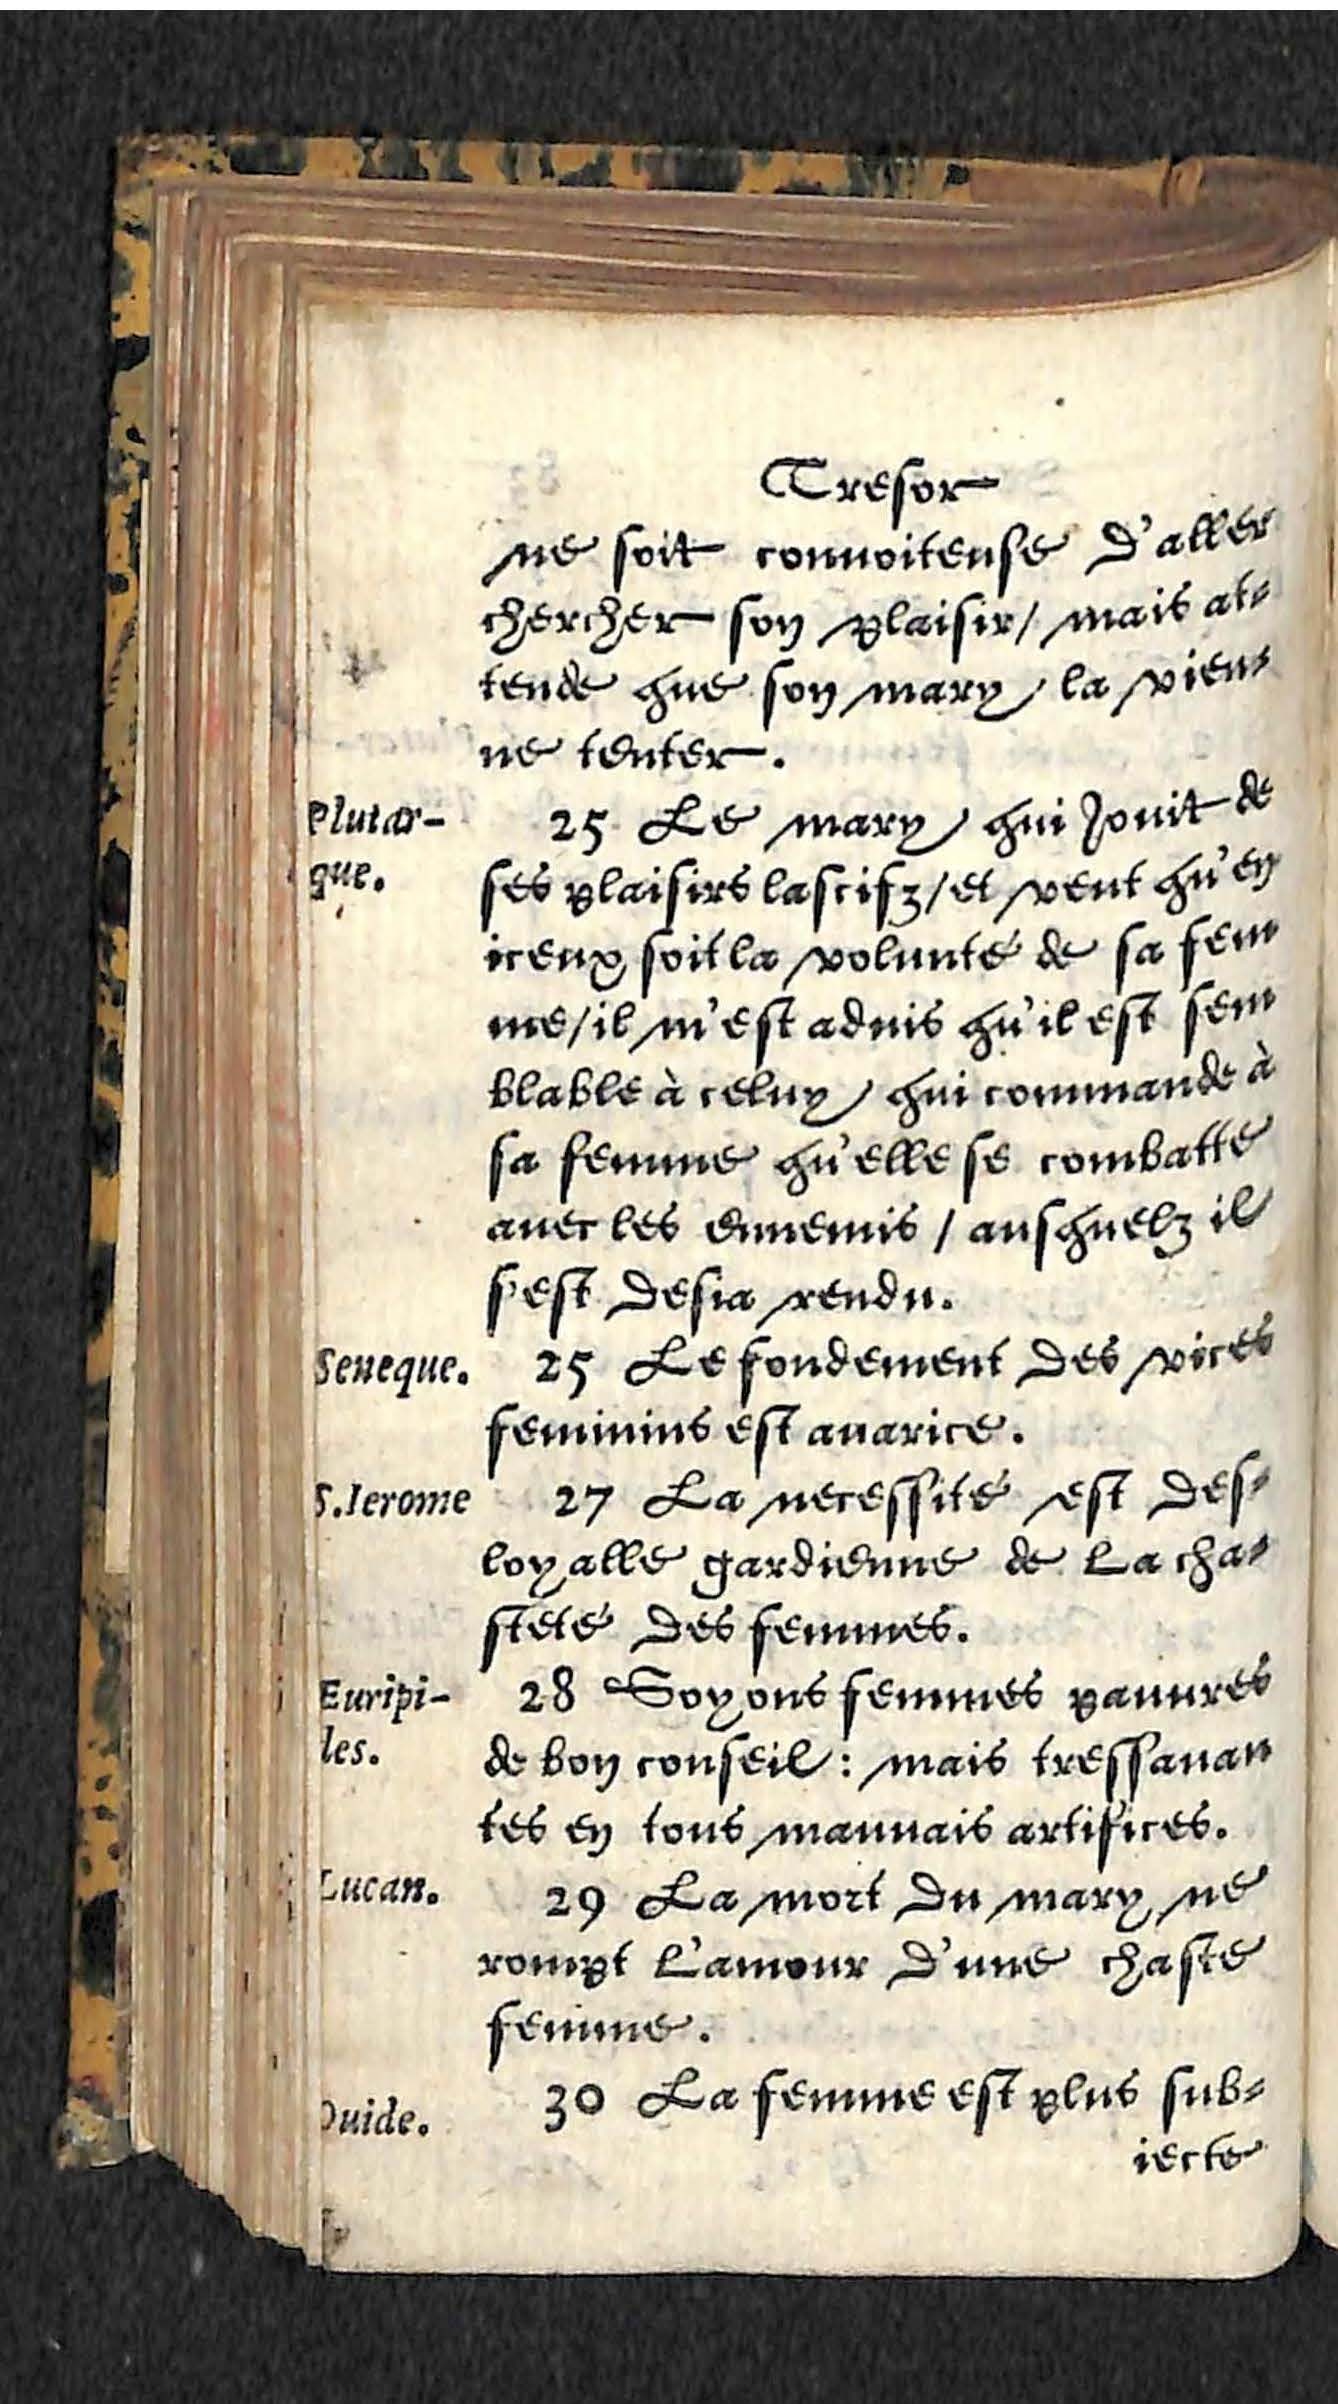 Tresor
ne soit conuoiteuse d'aller
chercher son plaisir/ mais at-
tende que son mary la vien-
ne tenter.
Plutar-
que.
25 Le mary qui jouit de
ses plaisirs lascifz/et veut qu'en
iceux soit la volunté de sa fem
me/il m'est aduis qu'il est sem
blable à celuy qui commande à
sa femme qu'elle se combatte
auec les ennemis / ausquelz il
s'est desia rendu.
Seneque.
25 Le fondement des vices
feminins est auarice.
S.Ierome
27 La necessité est des-
loyalle gardienne de la cha-
steté des femmes.
Euripi-
des.
28 Soyons femmes pauures
de bon conseil : mais tressauan
tes en tous mauuais artifices.
Lucan.
29 La mort du mary ne
rompt l'amour d'une chaste
femme.
Ouide.
30 La femme est plus sub-
iecte